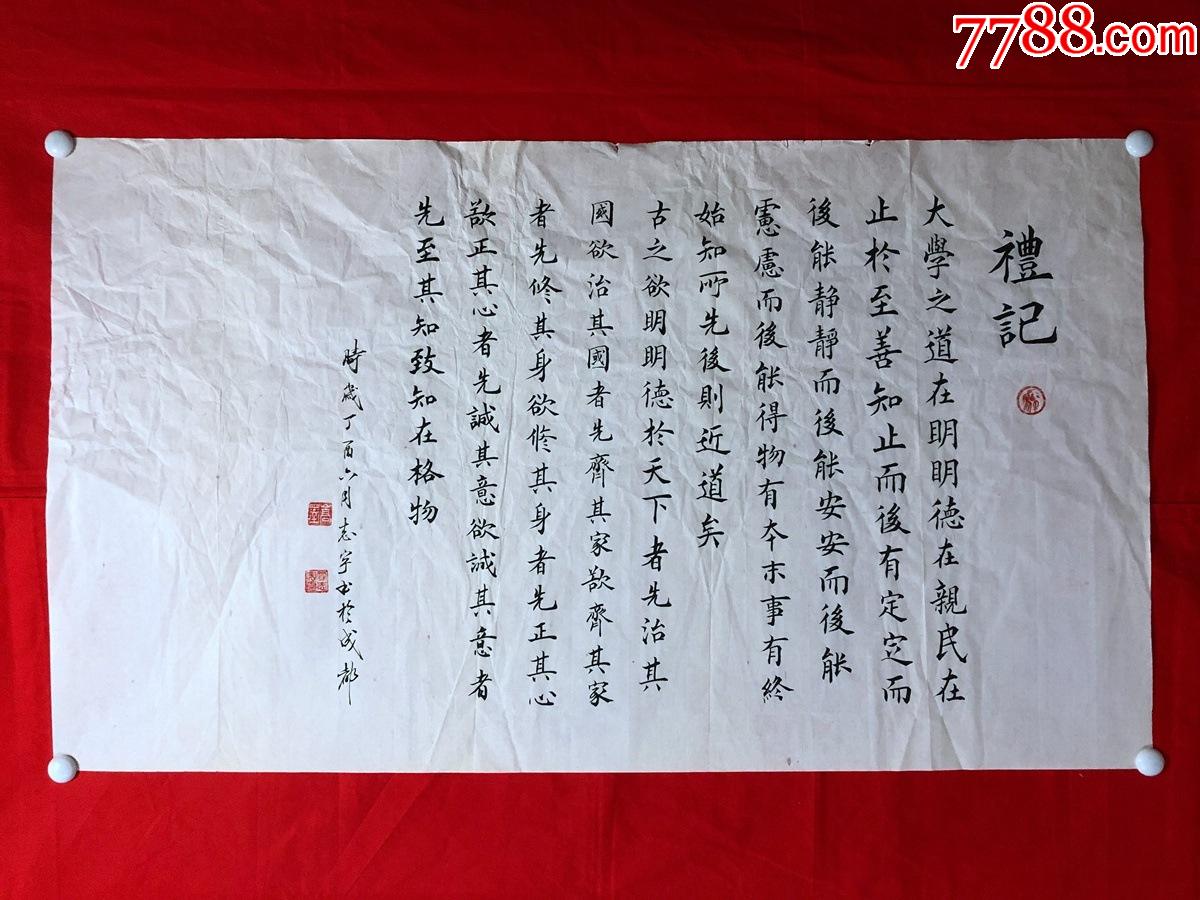 7788.com
禮記
大學之道在明明德在親民在
止於至善知止而後有定定而
後能静靜而後能安安而後能
慮慮而後能得物有本末事有終
始知所先後則近道矣
古之欲明明德於天下者先治其
國欲治其國者先齊其家欲齊其家
者先修其身欲修其身者先正其心
欲正其心者先誠其意欲誠其意者
先至其知致知在格物
時歲丁酉六月志宇书於成都